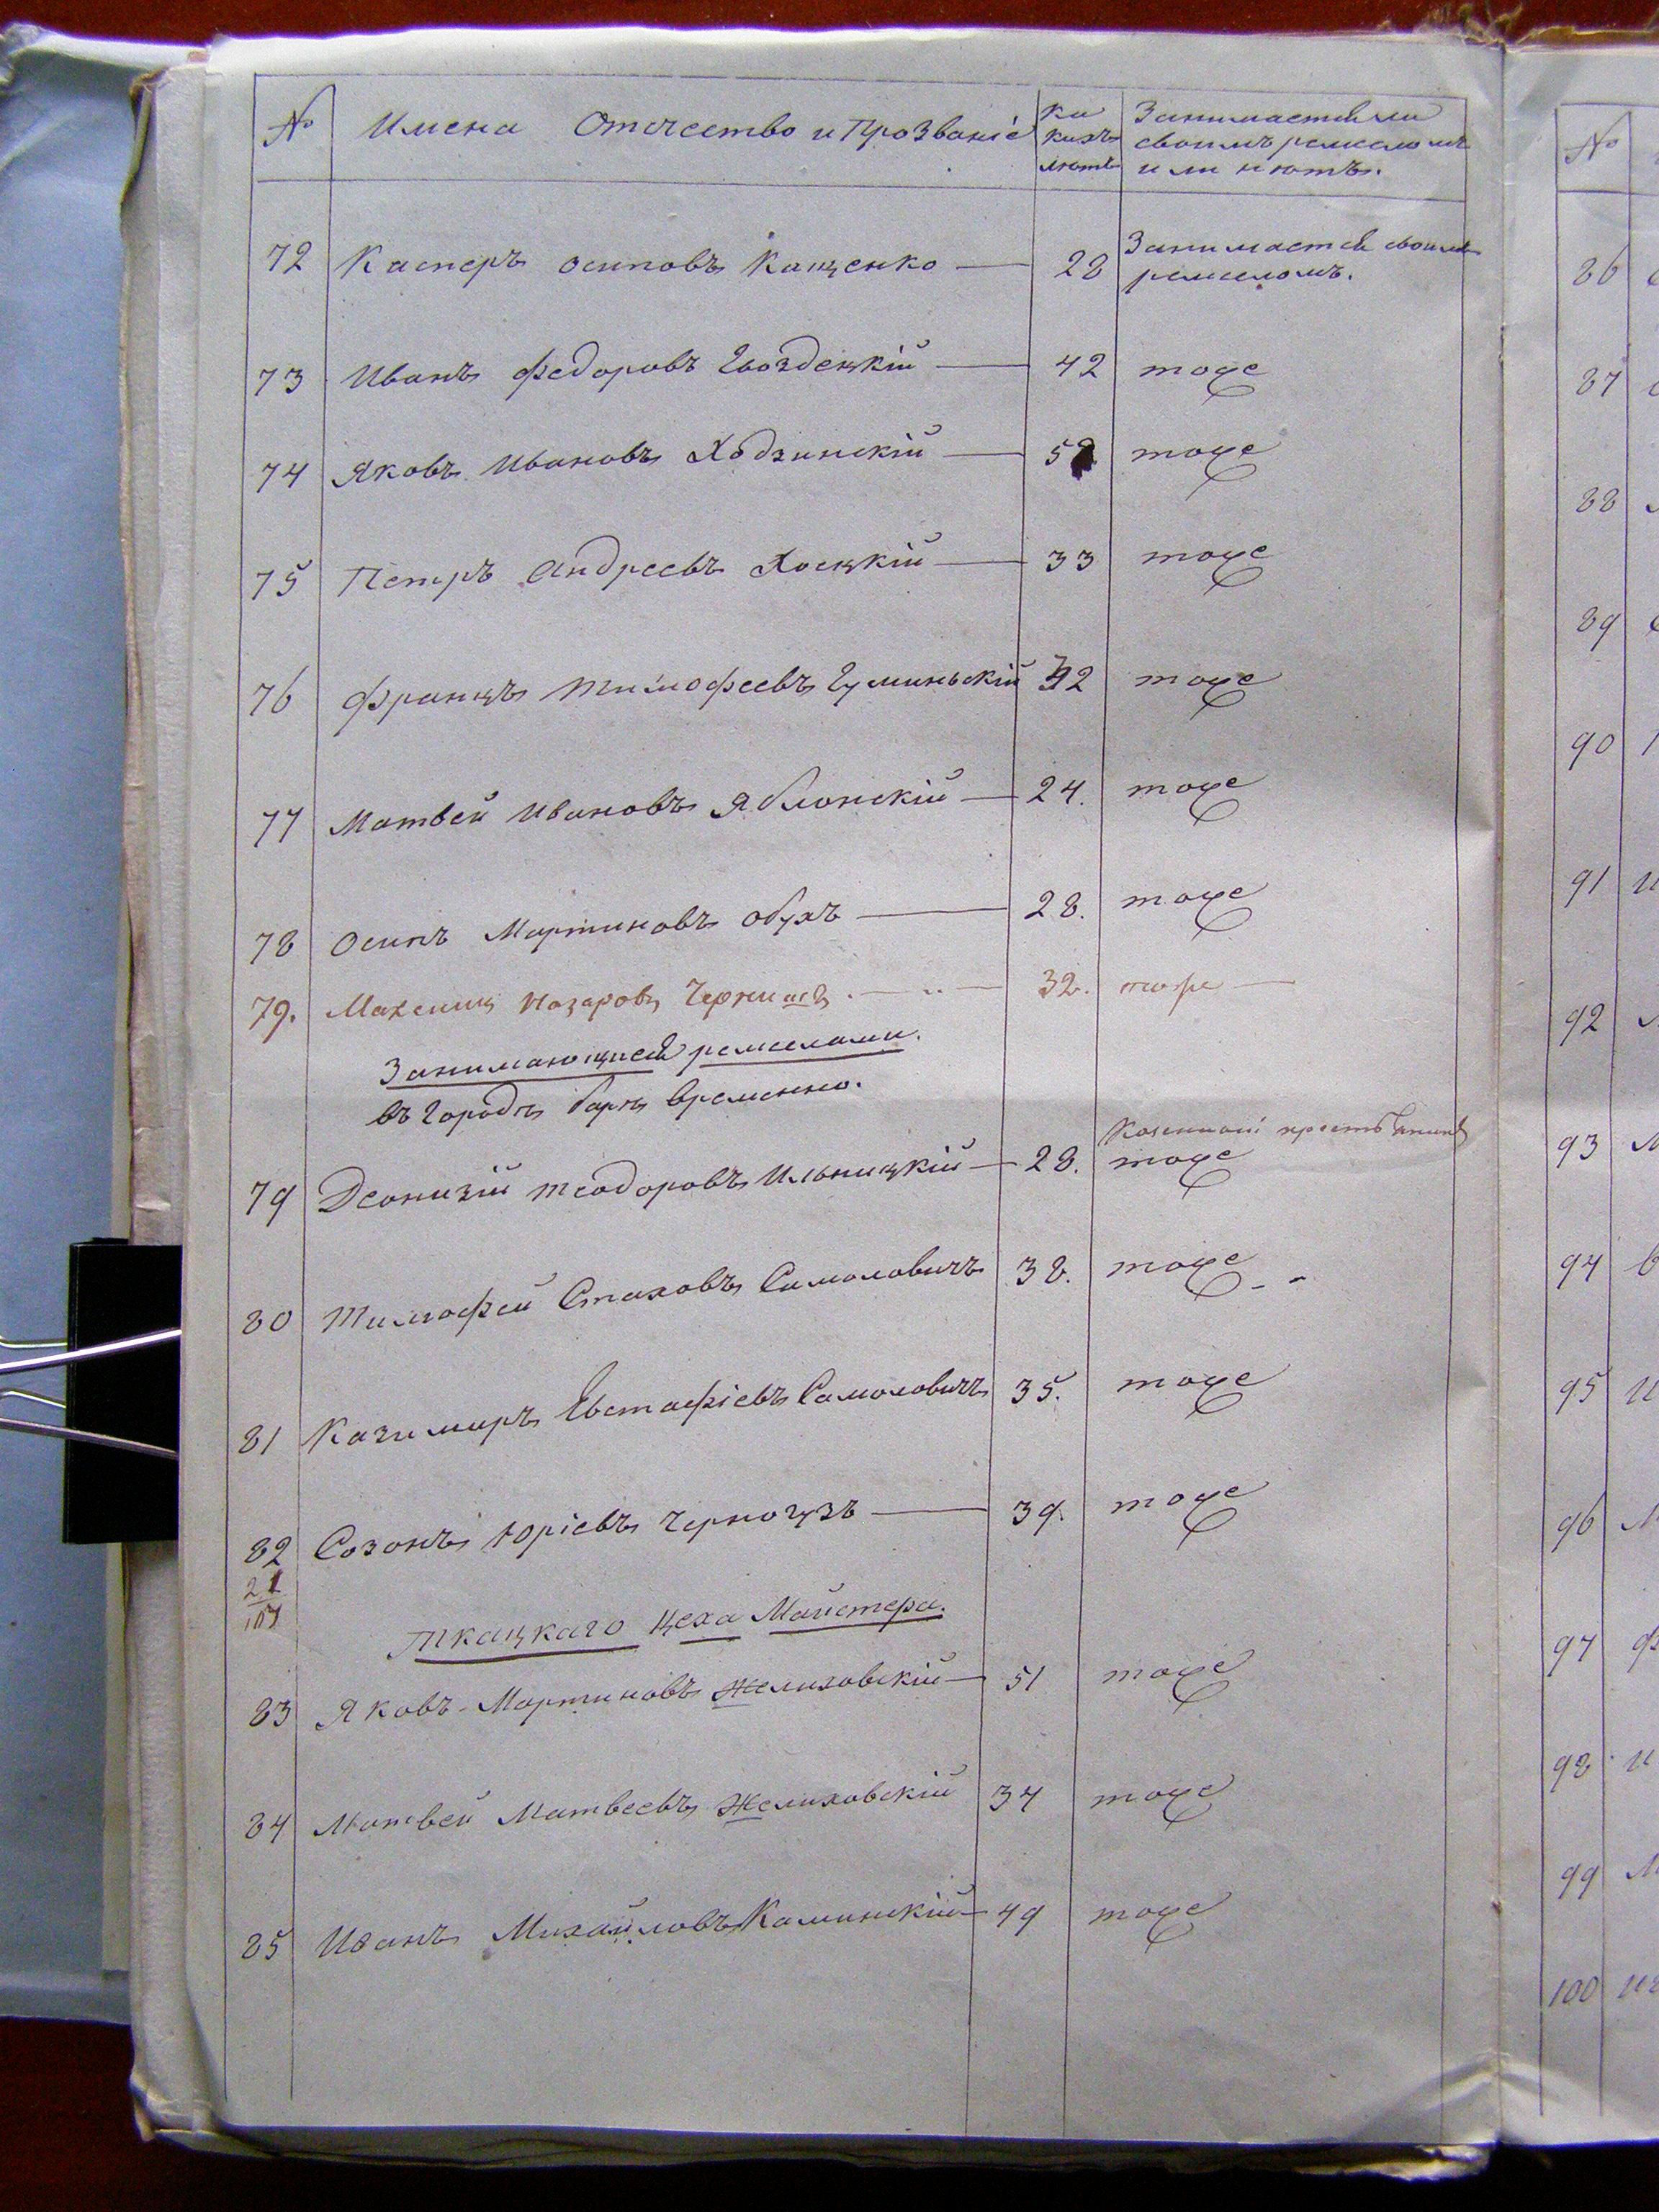 № Имена Отчество и Прозваніе Ка
кихъ
лѣтъ Занимается ли
своимъ ремесломъ
или нѣтъ.
72 Касперъ Осиповъ Кащенко — 28 Занимается своимъ
ремесломъ.
73 Иванъ Федоровъ Гвоздецкій — 42 тоже
74 Яковъ Ивановъ Ходзинскій — тоже
75 Петръ Андреевъ Хоецкій — 33 тоже
76 Францъ Тимофеевъ Гуминьскій тоже
77 Матвей Ивановъ Яблонскій — 24. тоже
78 Осипъ Мартиновъ Обухъ — 28. тоже
79. Максимъ Назаровъ — 32. тоже —
Занимающіеся ремеслами.
въ городѣ Барѣ временно.
79 Деонизій Теодоровъ Ильницкій — 28. тоже
80 Тимофей Стаховъ Самоловичъ 38. тоже
81 Казимиръ Евстафіевъ Самоловичъ 35. тоже
82 Созонъ Юріевъ Черногузъ — 39. тоже
21
Ткацкаго Цеха Майстера.
83 Яковъ Мартиновъ Желиховскій — 51 тоже
84 Матвей Матвеевъ Желиховскій 34 тоже
85 Иванъ Михайловъ Каминскій — 49 тоже
№
86
87
88
89
90
91
92
93
94
95
96
97
98
99
100